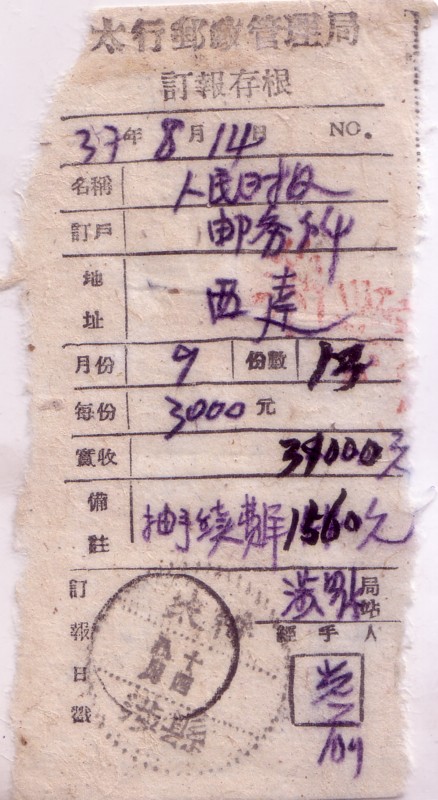 太行郵政管理局
訂報存根
37年8月14日 NO.
名稱 人民日报
訂戶 邮务科
地址 西达
月份 9 份數 13
每份 3000元
實收 39000元
備註 抽手续費 1560元
訂報日戳 涉县 局站
經手人
涉縣